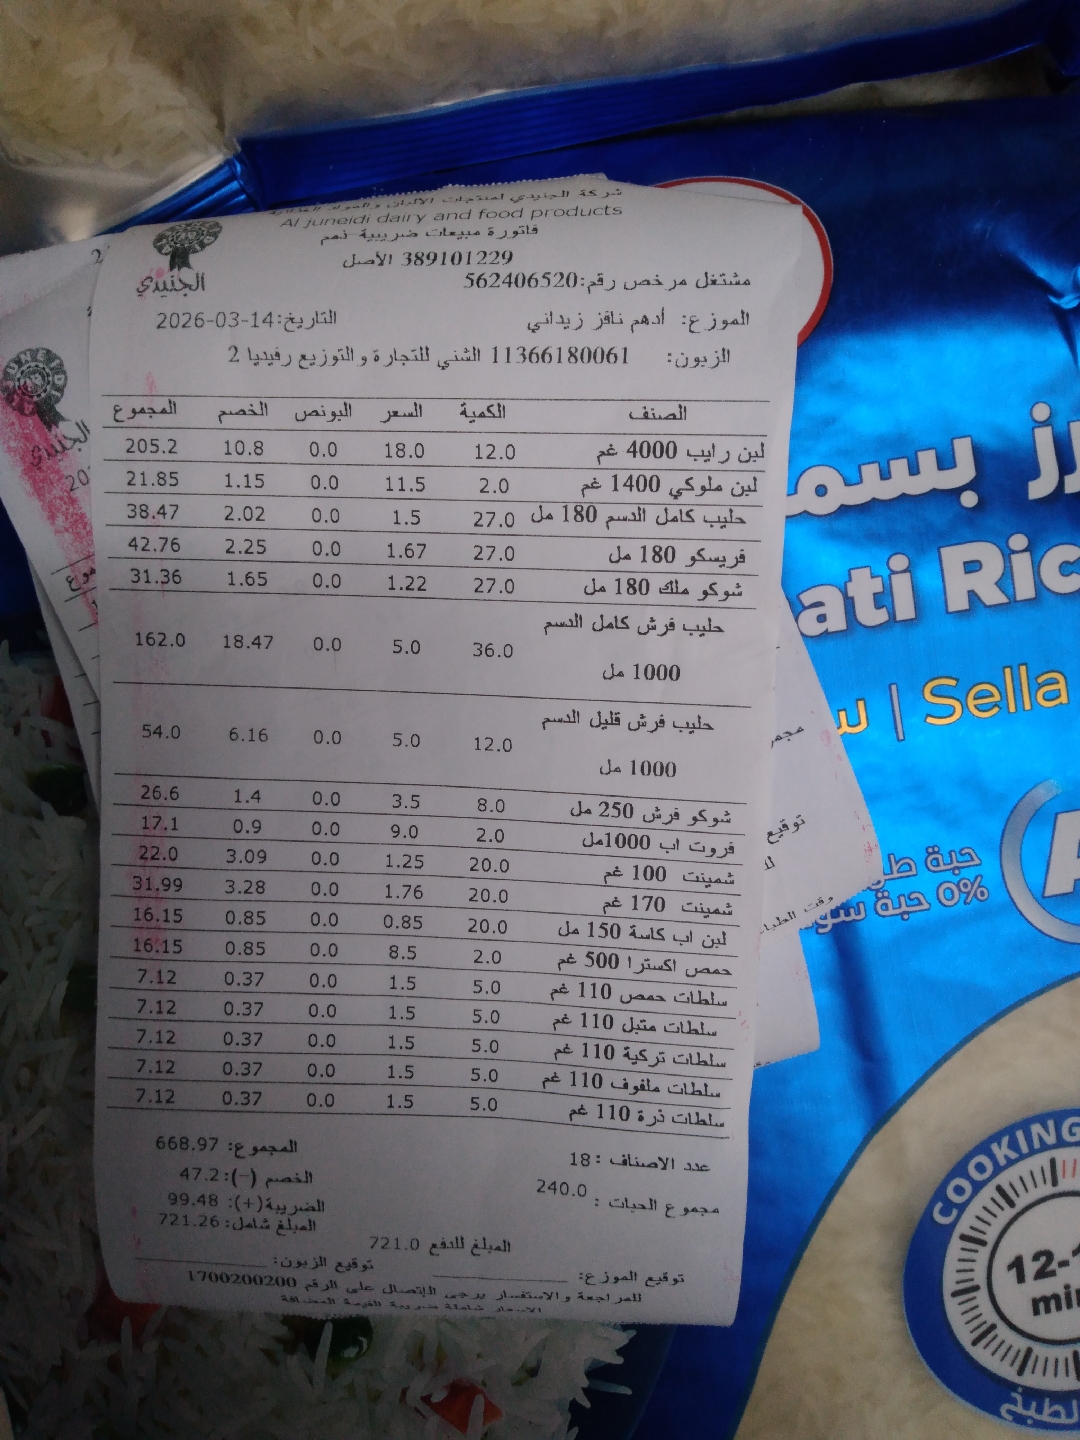 شركة الجنيدي لمنتجات الألبان والمواد الغذائية
Al juneidi dairy and food products
فاتورة مبيعات ضريبية-ذمم
389101229 الأصل
الجنيدي
مشتغل مرخص رقم:562406520
الموزع: أدهم نافز زيداني التاريخ:2026-03-14
الزبون: 11366180061 الشني للتجارة والتوزيع رفيديا 2
الصنف الكمية السعر البونص الخصم المجموع
لبن رايب 4000 غم 12.0 18.0 0.0 10.8 205.2
لبن ملوكي 1400 غم 2.0 11.5 0.0 1.15 21.85
حليب كامل الدسم 180 مل 27.0 1.5 0.0 2.02 38.47
فريسكو 180 مل 27.0 1.67 0.0 2.25 42.76
شوكو ملك 180 مل 27.0 1.22 0.0 1.65 31.36
حليب فرش كامل الدسم
1000 مل 36.0 5.0 0.0 18.47 162.0
حليب فرش قليل الدسم
1000 مل 12.0 5.0 0.0 6.16 54.0
شوكو فرش 250 مل 8.0 3.5 0.0 1.4 26.6
فروت اب 1000مل 2.0 9.0 0.0 0.9 17.1
شمينت 100 غم 20.0 1.25 0.0 3.09 22.0
شمينت 170 غم 20.0 1.76 0.0 3.28 31.99
لبن اب كاسة 150 مل 20.0 0.85 0.0 0.85 16.15
حمص اكسترا 500 غم 2.0 8.5 0.0 0.85 16.15
سلطات حمص 110 غم 5.0 1.5 0.0 0.37 7.12
سلطات متبل 110 غم 5.0 1.5 0.0 0.37 7.12
سلطات تركية 110 غم 5.0 1.5 0.0 0.37 7.12
سلطات ملفوف 110 غم 5.0 1.5 0.0 0.37 7.12
سلطات ذرة 110 غم 5.0 1.5 0.0 0.37 7.12
عدد الاصناف : 18 المجموع: 668.97
مجموع الحبات : 240.0 الخصم (-): 47.2
الضريبة(+): 99.48
المبلغ شامل: 721.26
المبلغ للدفع 721.0
توقيع الموزع: توقيع الزبون:
للمراجعة والاستفسار يرجى الإتصال على الرقم 1700200200
الاسعار شاملة ضريبة القيمة المضافة
رز بسم
ati Ric
Sella |
حبة
0% حبة
COOKING
12-1
min
الطبخ
الجنيدي
توقيع
وقت الطباعة